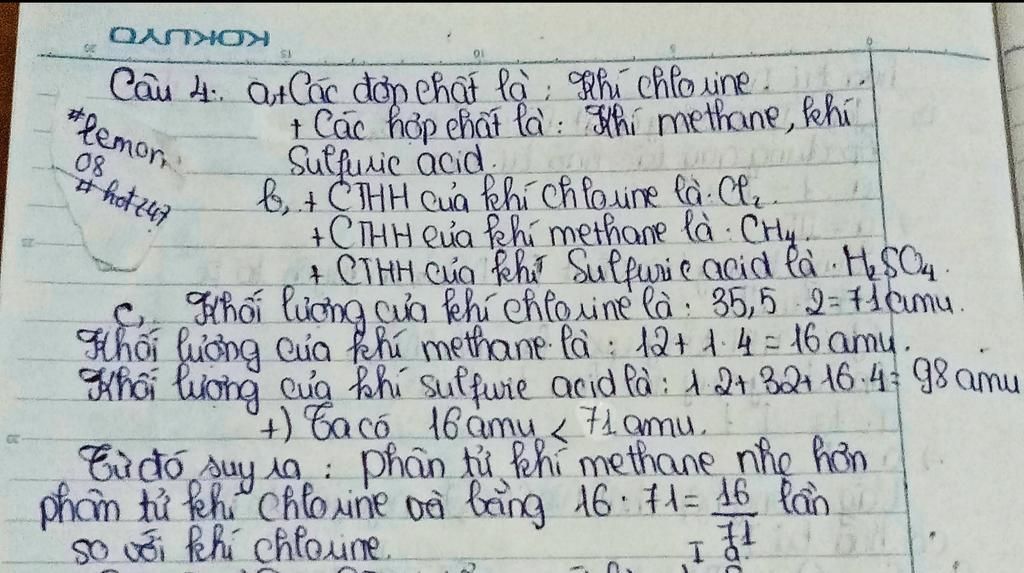 KOKUYO
Câu 4: a, + Các đơn chất là: Khí chlorine.
+ Các hợp chất là: Khí methane, khí
Sulfuric acid.
#lemon
08
#hot247
b, + CTHH của khí chlorine là: Cl₂
+ CTHH của khí methane là: CH₄.
+ CTHH của khí Sulfuric acid là: H₂SO₄.
c, Khối lượng của khí chlorine là: 35,5 . 2 = 71 amu.
Khối lượng của khí methane là: 12 + 1 . 4 = 16 amu.
Khối lượng của khí sulfuric acid là: 1 . 2 + 32 + 16 . 4 = 98 amu
+) Ta có 16 amu < 71 amu.
Từ đó suy ra: phân tử khí methane nhẹ hơn
phân tử khí chlorine và bằng 16 : 71 = 16/71 lần
so với khí chlorine.